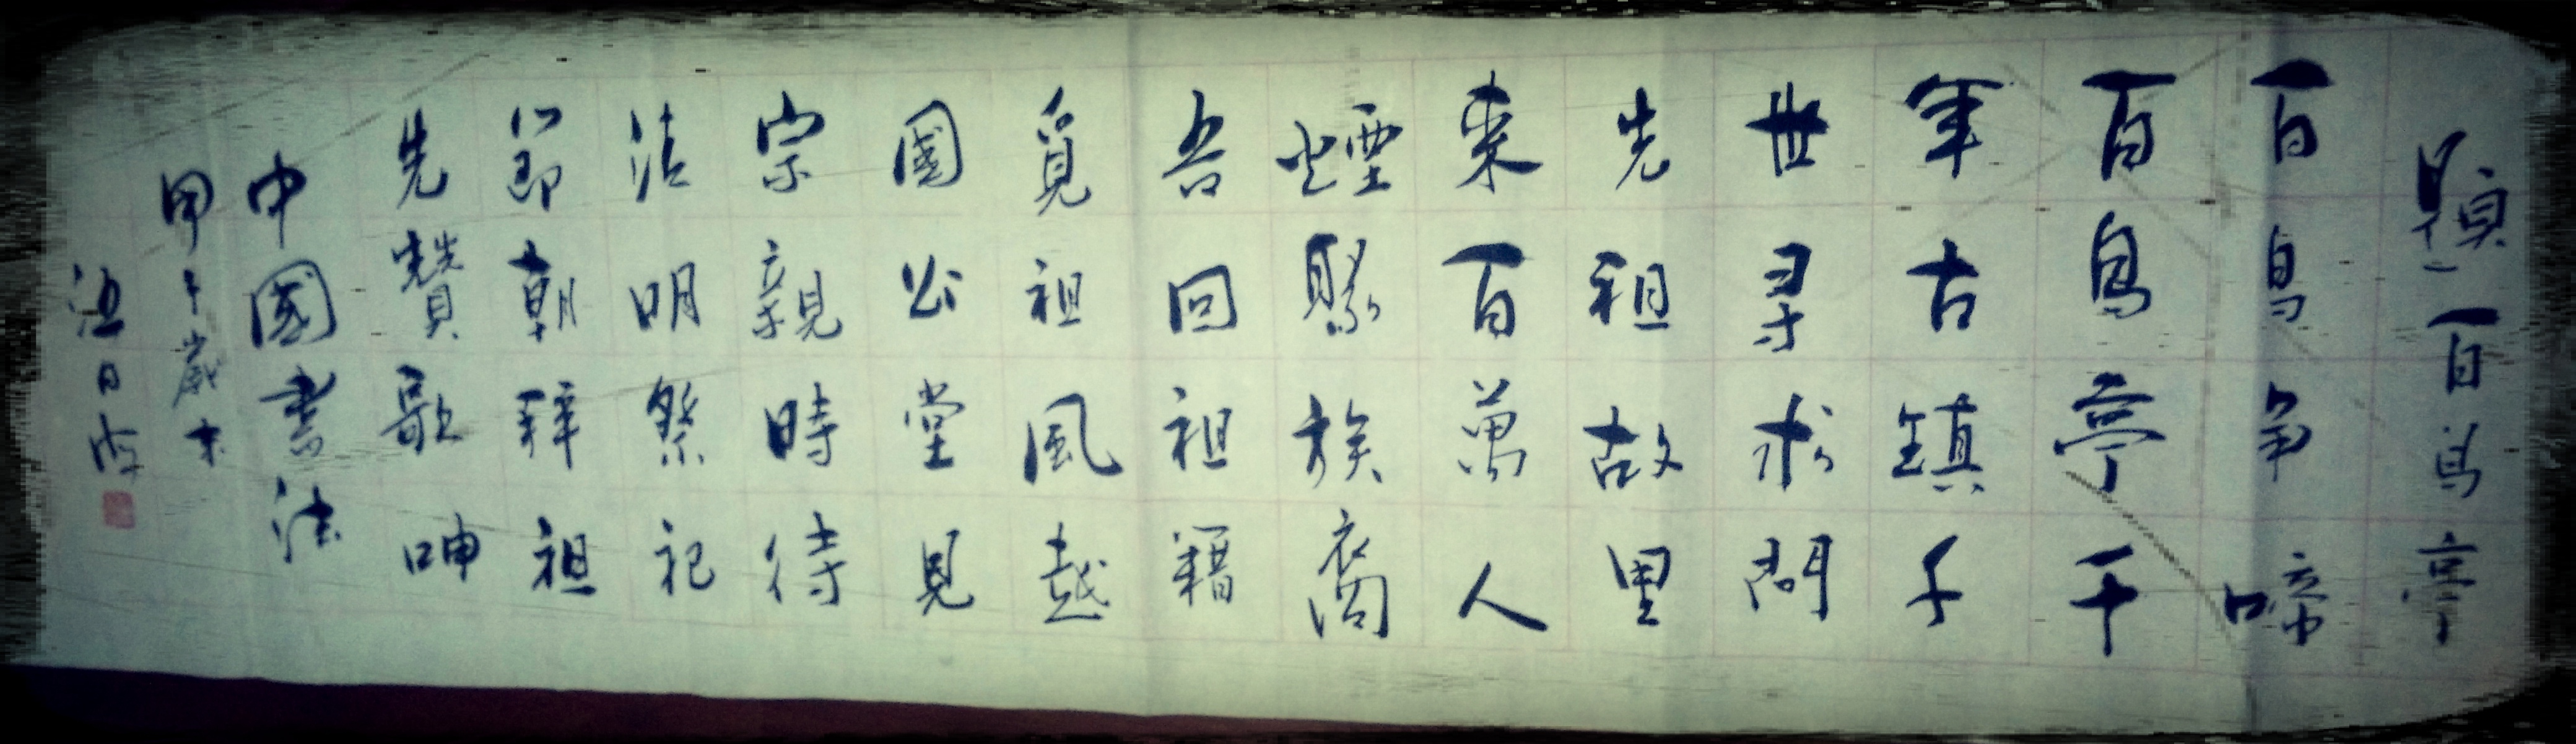 題百鳥亭
百鳥争啼
百鳥亭千
年古鎮千
世尋求問
先祖故里
來百萬人
煙聚族裔
吾回祖籍
覓祖風越
國公堂見
宗親時待
清明祭祀
節朝拜祖
先贊歌呻
中國書法
甲午歲末
汪日